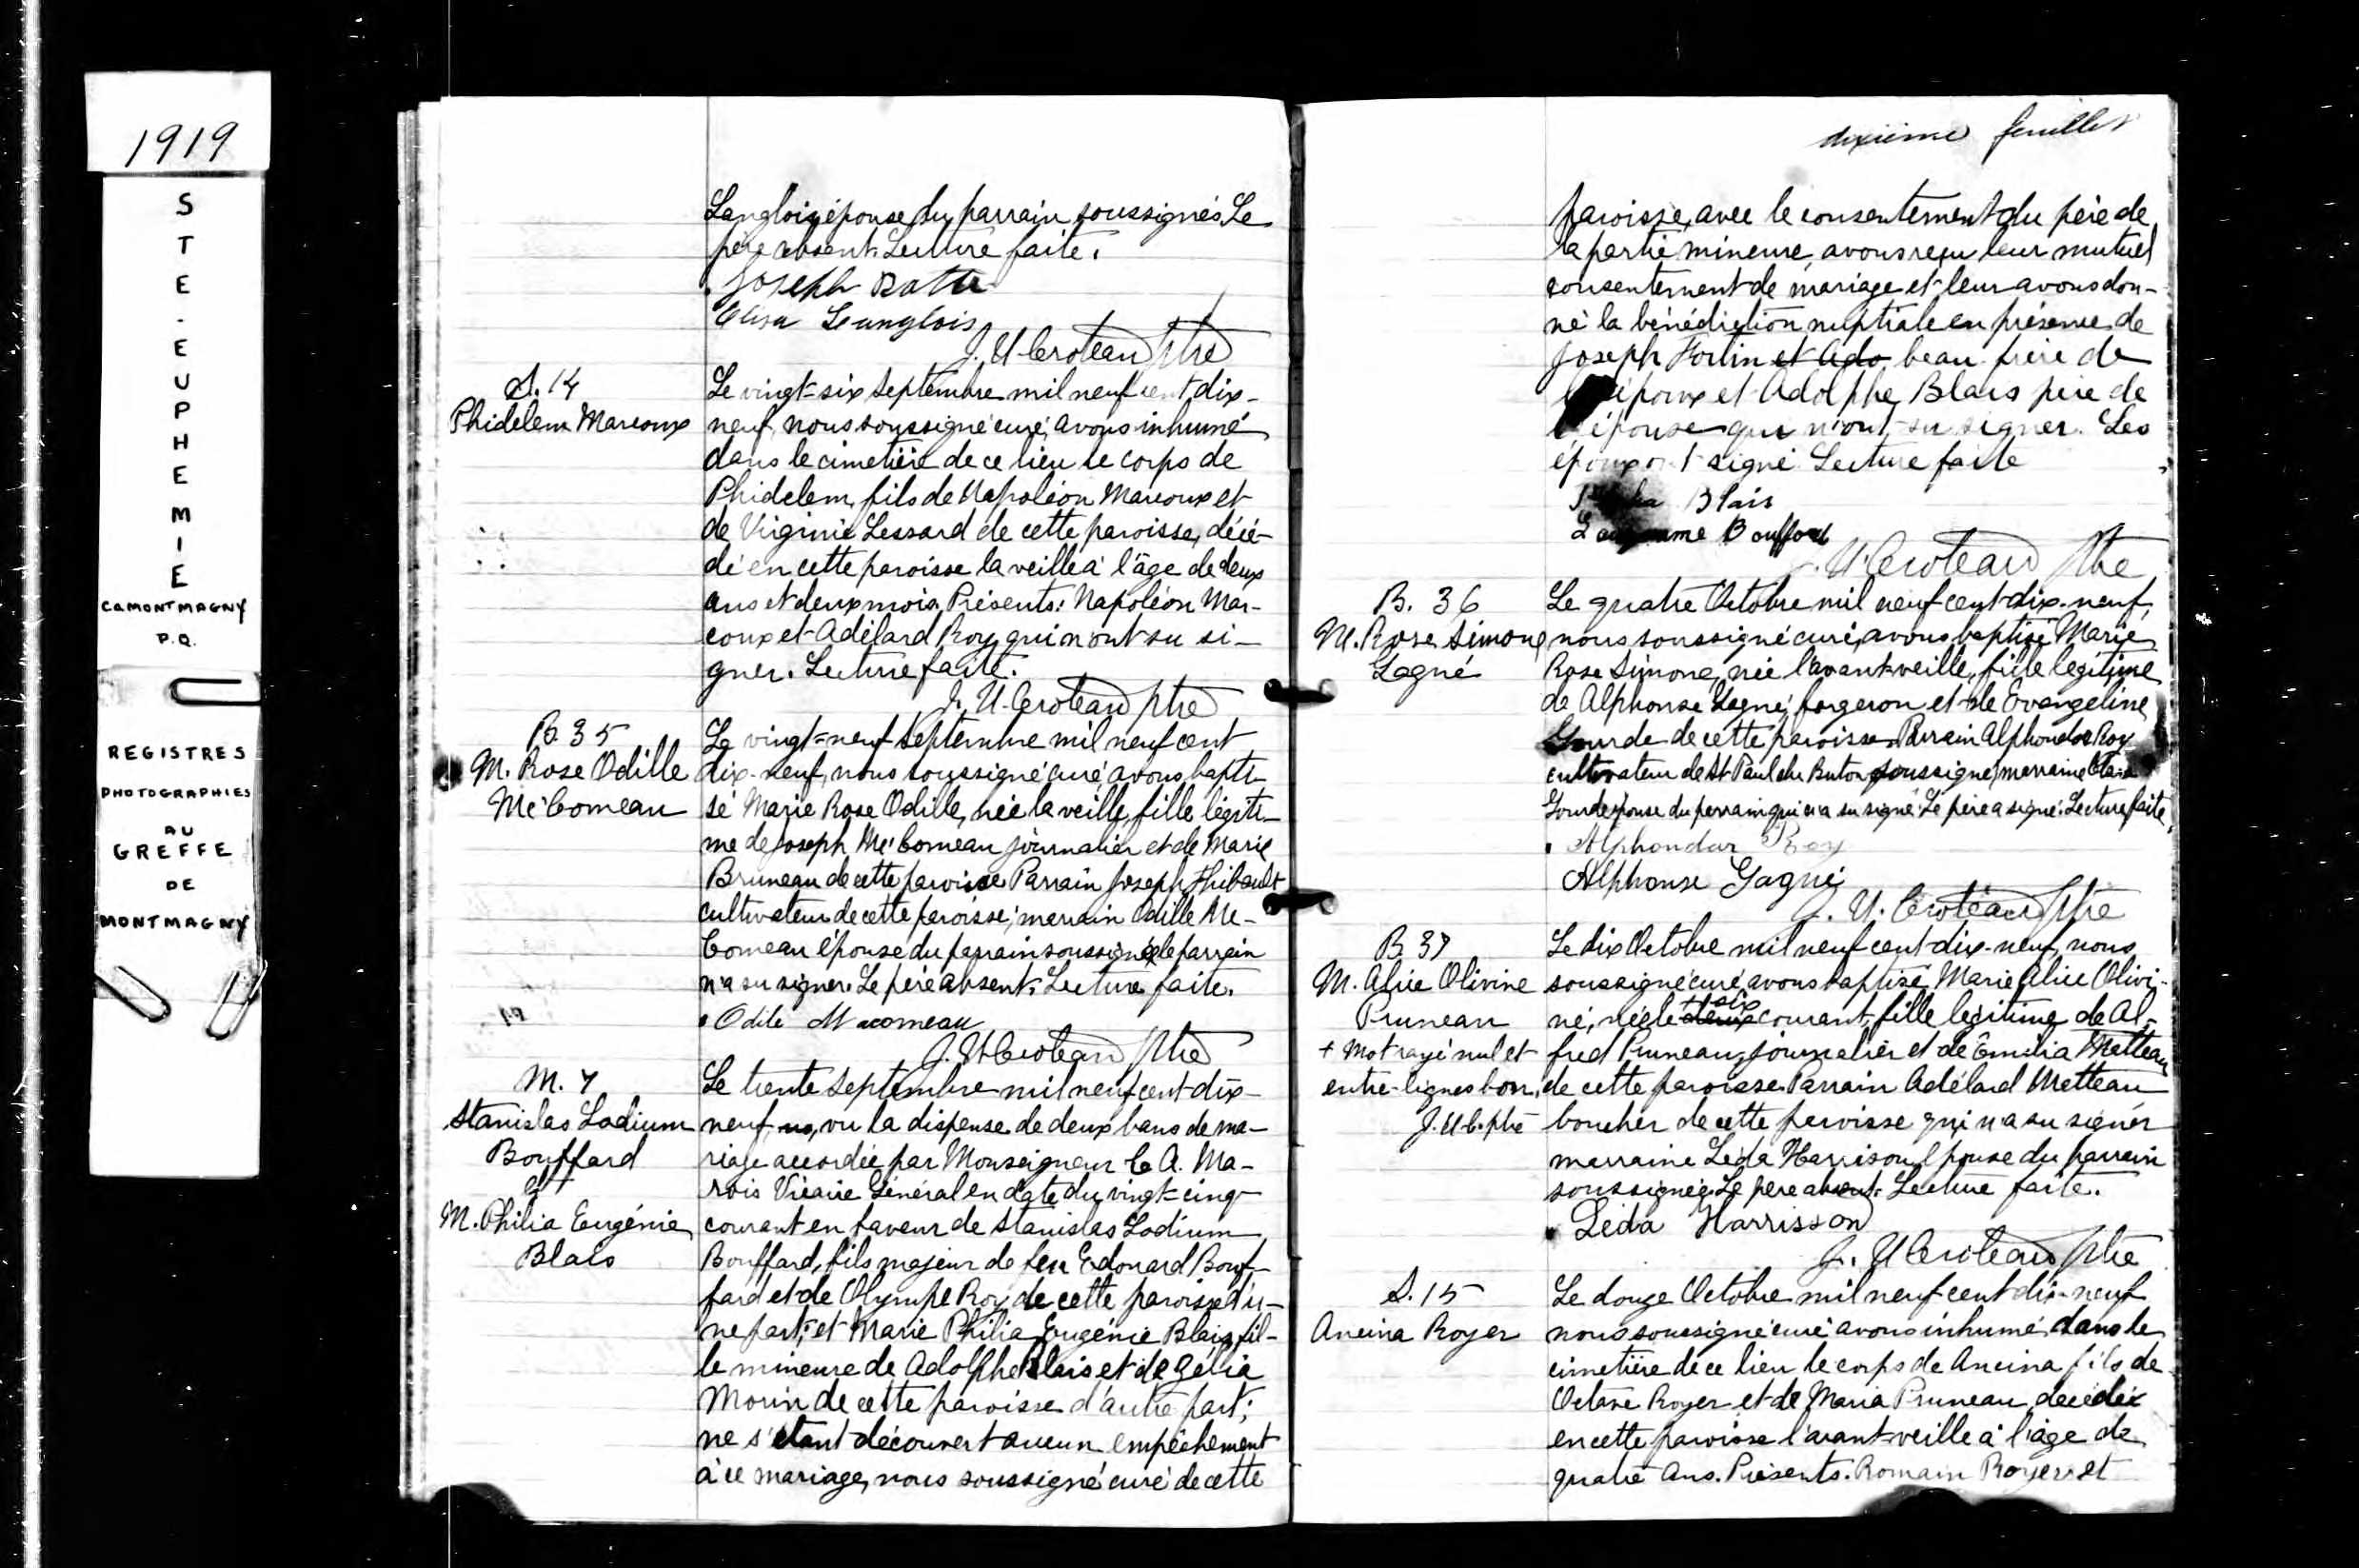 1919
STE-EUPHEMIE
CO MONTMAGNY
P.Q.
REGISTRES
PHOTOGRAPHIES
AU
GREFFE
DE
MONTMAGNY
Langlois, épouse du parrain soussignés. Le
père absent. Lecture faite.
Joseph
Elisa Langlois
J. U. Croteau Ptre
S. 14
Phidelem Marcoux
Le vingt-six Septembre mil neuf cent dix-
neuf, nous soussigné curé, avons inhumé
dans le cimetière de ce lieu le corps de
Phidelem, fils de Napoléon Marcoux et
de Virginie Lessard de cette paroisse, décé-
dé en cette paroisse la veille à l'âge de deux
ans et deux mois. Présents: Napoléon Mar-
coux et Adélard Roy qui n'ont su si-
gner. Lecture faite.
J. U. Croteau Ptre
B. 35
M. Rose Odille
McComeau
Le vingt-neuf Septembre mil neuf cent
dix-neuf, nous soussigné curé, avons bapti-
sé Marie Rose Odille, née la veille, fille légiti-
me de Joseph McComeau journalier et de Marie
Bruneau de cette paroisse. Parrain Joseph Thibault
cultivateur de cette paroisse; marrain Odille Mc-
Comeau épouse du parrain soussignée le parrain
n'a su signer. Le père absent. Lecture faite.
Odile Macomeau
J. U. Croteau Ptre
M. 7
Stanislas Lodium
Bouffard
et
M. Philia Eugénie
Blais
Le trente Septembre mil neuf cent dix-
neuf, vu la dispense de deux bans de ma-
riage accordée par Monseigneur C. A. Ma-
rois Vicaire Général en date du vingt-cinq
courant en faveur de Stanislas Lodium
Bouffard, fils majeur de feu Edouard Bouf-
fard et de Olympe Roy de cette paroisse d'u-
ne part; et Marie Philia Eugénie Blais, fil-
le mineure de Adolphe Blais et de Zélia
Morin de cette paroisse d'autre part;
ne s'étant découvert aucun empêchement
à ce mariage, nous soussigné curé de cette
dixième feuillet
paroisse, avec le consentement du père de
la partie mineure, avons reçu leur mutuel
consentement de mariage et leur avons don-
né la bénédiction nuptiale en présence de
Joseph Fortin et Ado beau-frère de
l'époux et Adolphe Blais père de
l'épouse qui n'ont su signer. Les
époux ont signé. Lecture faite
Blais
Bouffard
J. U. Croteau Ptre
B. 36
M. Rose Simone
Gagné
Le quatre Octobre mil neuf cent-dix-neuf,
nous soussigné curé, avons baptisé Marie
Rose Simone, née l'avant-veille, fille légitime
de Alphonse Gagné, forgeron et de Evangeline
Gourde de cette paroisse. Parrain Alphondor Roy
cultivateur de St Paul du Buton soussigné, marraine
Gourde épouse du parrain qui n'a su signé. Le père a signé. Lecture faite.
Alphondor Roy
Alphonse Gagné
J. U. Croteau Ptre
B. 37
M. Alice Olivine
Pruneau
+ Mot rayé nul et
entre-lignes bon.
J. U. C. ptre
Le dix Octobre mil neuf cent-dix-neuf, nous
soussigné curé, avons baptisé Marie Alice Olivi-
ne, née le + deux six courant, fille légitime de Al-
fred Pruneau, journalier et de Emilia Metteau
de cette paroisse. Parrain Adélard Metteau
boucher de cette paroisse qui n'a su signer
marraine Léda Harrison épouse du parrain
soussignée. Le père absent. Lecture faite.
Léda Harrisson
J. U. Croteau Ptre
S. 15
Ancina Royer
Le douze Octobre mil neuf cent dix-neuf
nous soussigné curé avons inhumé dans le
cimetière de ce lieu le corps de Ancina fils de
Octave Royer et de Maria Pruneau, décédé
en cette paroisse l'avant-veille à l'âge de
quatre ans. Présents. Romain Royer et